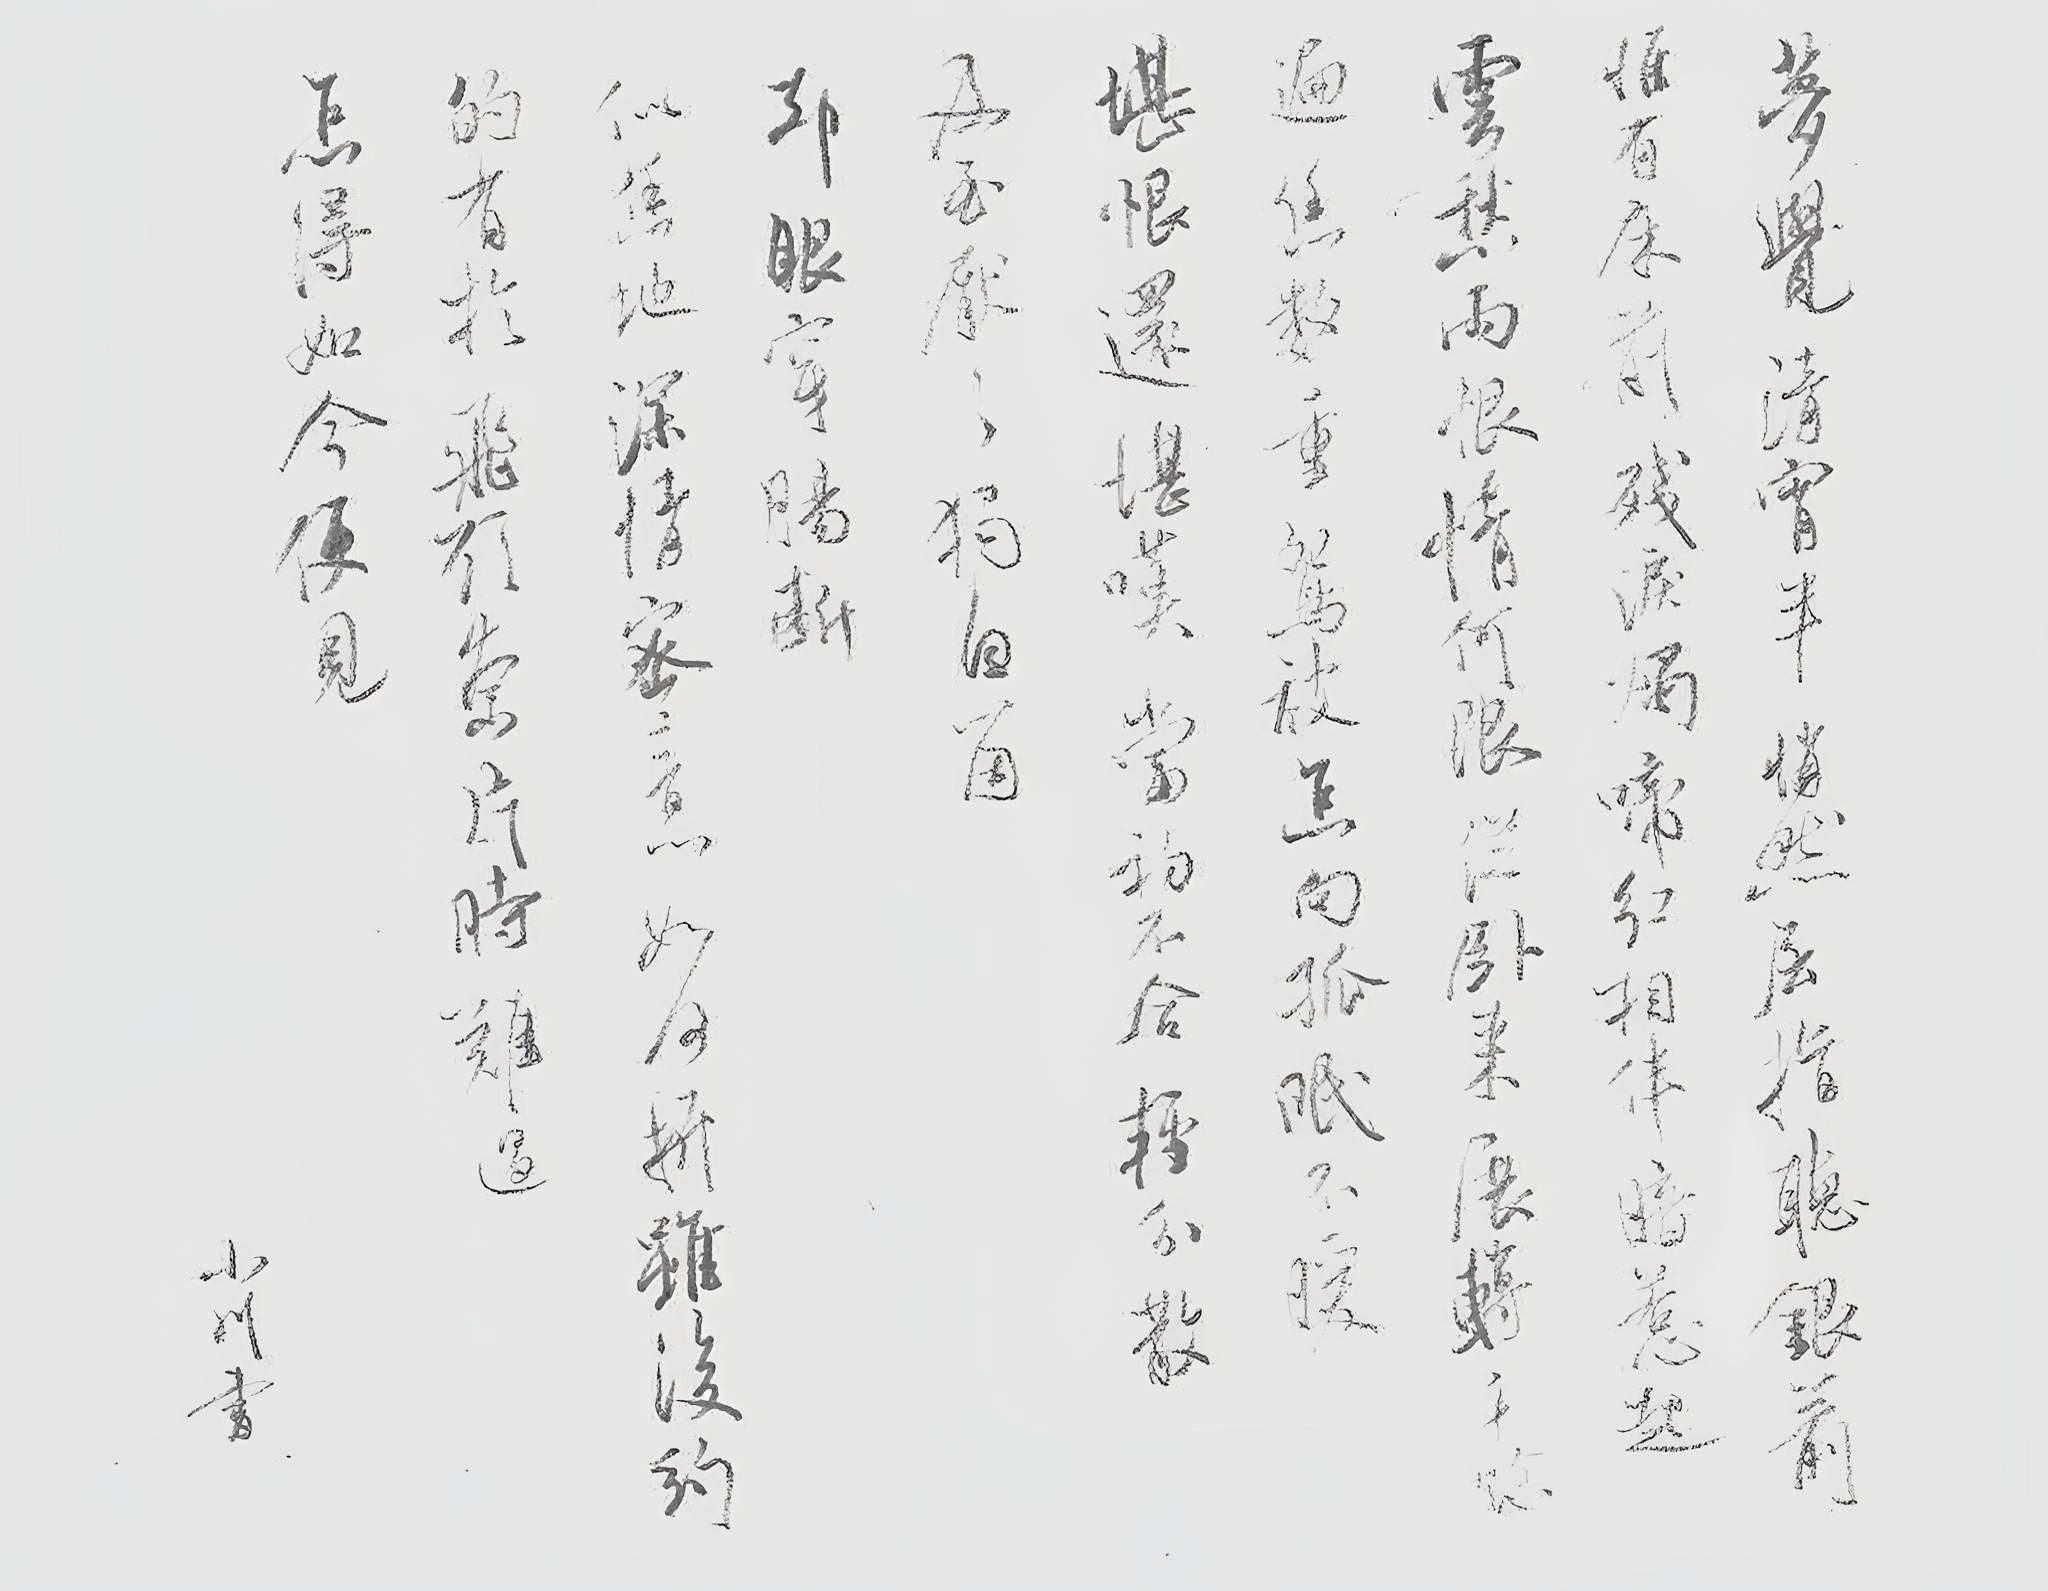 夢覺清宵半悄然屈指聽銀箭
惟有床前殘淚燭啼紅相伴暗惹起
雲愁雨恨情何限從臥來展轉千餘
遍恁數重鴛被怎向孤眠不暖
堪恨還堪嘆當初不合輕分散
及至厭々獨自箇
却眼穿腸斷
似恁地深情密意如何拚雖後約
的有於飛願奈片時難過
怎得如今便見
小川書